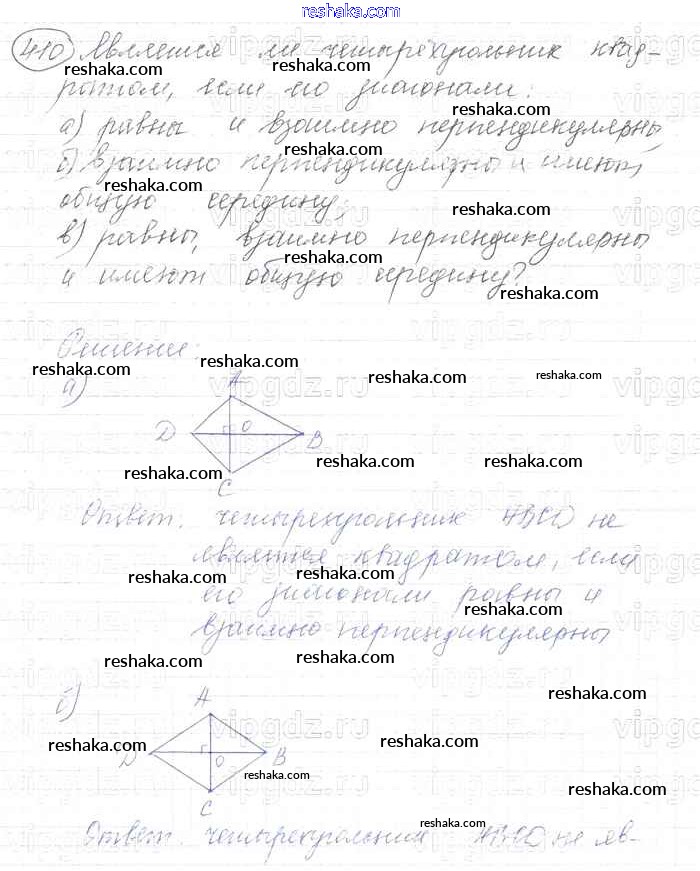 www.reshaka.com
410 Является ли четырёхугольник квад-
reshaka.com reshaka.com reshaka.com
ратом, если его диагонали:
reshaka.com
а) равны и взаимно перпендикулярны;
reshaka.com
б) взаимно перпендикулярны и имеют
общую середину;
reshaka.com
в) равны, взаимно перпендикулярны
reshaka.com
и имеют общую середину?
reshaka.com
Решение:
reshaka.com reshaka.com reshaka.com reshaka.com
а)
A
D O B
C
reshaka.com reshaka.com reshaka.com
Ответ: четырехугольник ABCD не
является квадратом, если
reshaka.com reshaka.com
его диагонали равны и
reshaka.com
взаимно перпендикулярны
reshaka.com reshaka.com
б)
reshaka.com
A
D O B
C
reshaka.com reshaka.com
reshaka.com reshaka.com
reshaka.com
Ответ: четырехугольник ABCD не яв-
vipgdz.ru